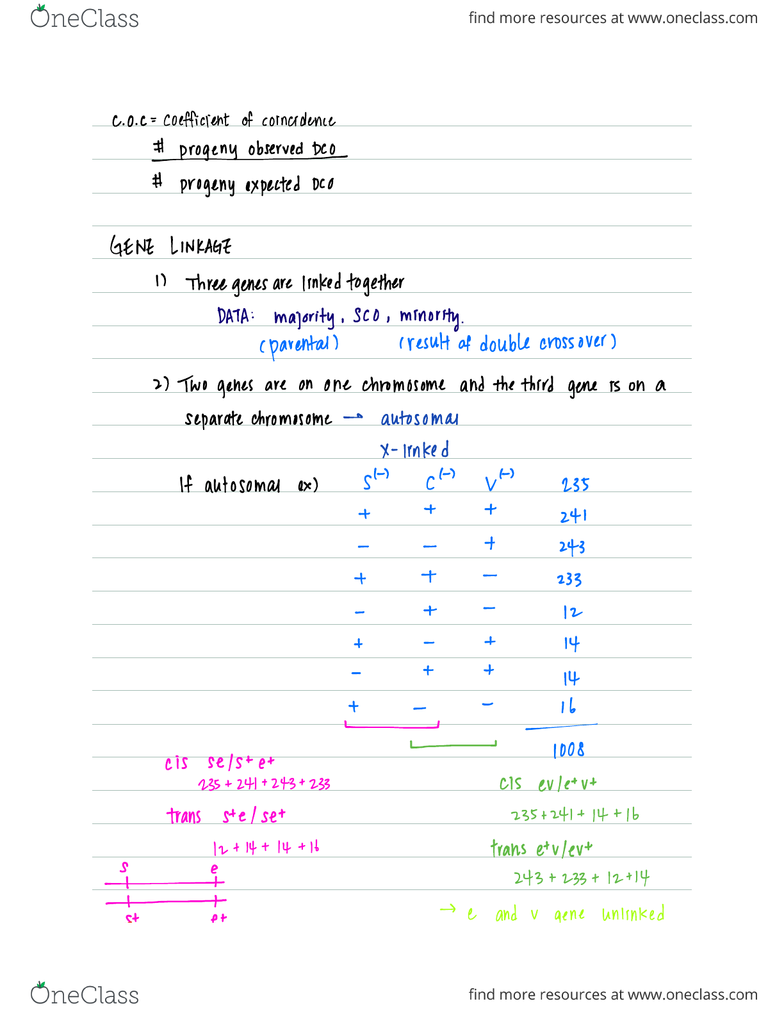 OneClass find more resources at www.oneclass.com
c.o.c = coefficient of coincidence
# progeny observed DCO
# progeny expected DCO
GENE LINKAGE
1) Three genes are linked together
DATA: majority, SCO, minority.
(parental) (result of double crossover)
2) Two genes are on one chromosome and the third gene is on a
separate chromosome → autosomal
X-linked
If autosomal ex) S(-) C(-) V(-) 235
+ + + 241
- - + 243
+ + - 233
- + - 12
+ - + 14
- + + 14
+ - - 16
1008
cis se/s+ e+
235 + 241 + 243 + 233
trans s+e / se+
12 + 14 + 14 + 16
s e
s+ e+
cis ev/e+v+
235 + 241 + 14 + 16
trans e+v/ev+
243 + 233 + 12 + 14
→ e and v gene unlinked
OneClass find more resources at www.oneclass.com